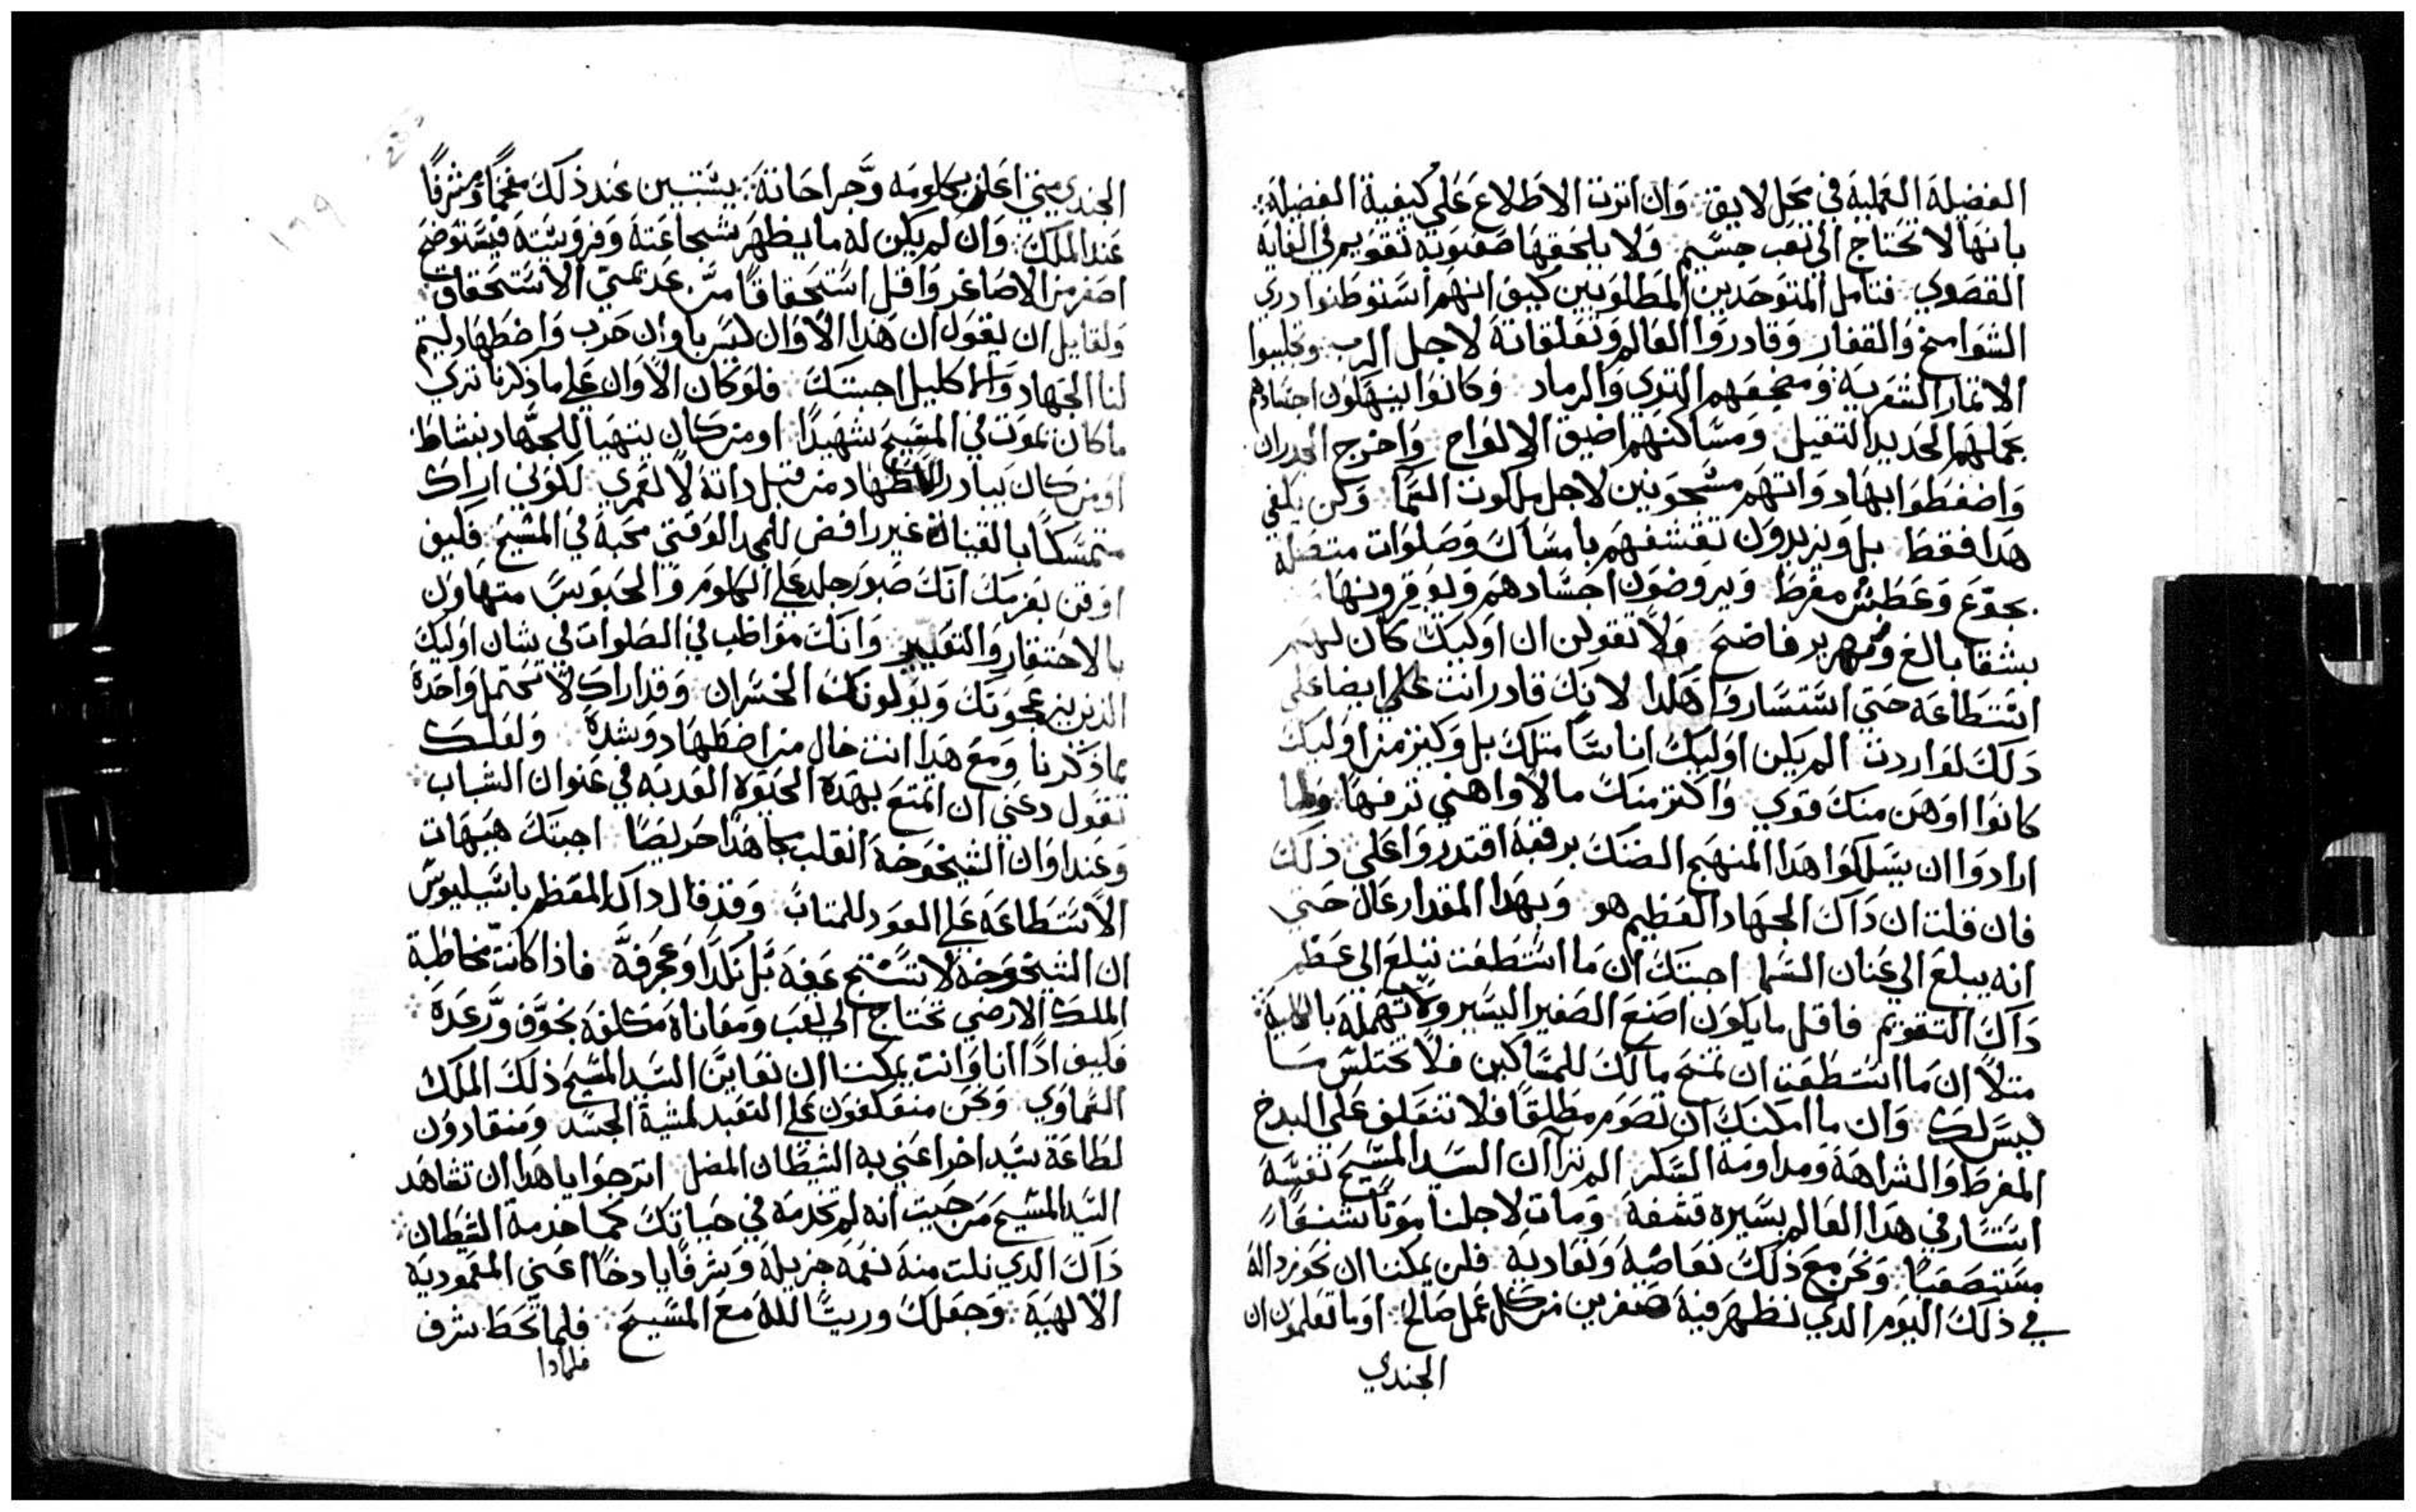 الفضيلة العملية في محل لايق وان اترت الاطلاع على كيفية الفضيلة
بانها لا تحتاج الى تعب جسيم ولا يلحقها صعوبة تقويم في الغاية
القصوي فتامل المتوحدين المطلوبين كيف انهم استوطنوا دري
الشوامخ والقفار وغادروا العالم وتعلقاته لاجل الرب وتجلببوا
الاتمار الشعرية ومضجعهم الترى والرماد وكانوا ينهكون اجسادهم
بحملهم الحديد التقيل ومساكنهم اضيق الالواج واحرج الجدران
واضغطوا بهاد وانهم مشحونين لاجل ملكوت السما ولن يكفي
هدا فقط بل ويزيدون تقشفهم بامساك وصلوات متصلة
بجوع وعطش مفرط ويروضون اجسادهم ويوقرونها
بشقا بالغ وزمهرير فاضح ولا تقولن ان اوليك كان لهم
استطاعة حتى استساروا هكدا لانك قادر انت ايضا على
دلك لو اردت الم يكن اوليك اناسا متلك بل وكتير من اوليك
كانوا اوهن منك قوي واكتر منك مالا واهنى ترفها ولما
ارادوا ان يسلكوا هدا المنهج الضنك برفقة اقتدروا على ذلك
فان قلت ان داك الجهاد العظيم هو وبهدا المقدار عال حتى
انه يبلغ الي عنان السما اجبتك ان ما استطعت تبلغ الي عظم
داك التقويم فاقل ما يكون اصنع الصغير اليسير ولا تهمله بالكلية
متلا ان ما استطعت ان تمنح مالك للمساكين فلا تختلس ما
ليس لك وان ما امكنك ان تصوم مطلقا فلا تتعلف على البدخ
المفرط والشراهة ومداومة السكر الم ترا ان السيد المسيح نفسه
استسار في هدا العالم بسيرة قشفة ومات لاجلنا موتا شنعا
مستصعبا ونحن مع ذلك نعاصية ونعاديه فلن يمكننا ان نحوز دالة
في ذلك اليوم الدي نظهر فيه صفرين من كل عمل صالح اوما تعلمون ان
الجندي
الجندي متي اعلن بكلومه وجراحاته يستبين عند ذلك مفخما ومشرفا
عند الملك وان لم يكن له ما يظهر شجاعته وفروسيته فيستوضح
اصغر من الاصاغر واقل استحقاقا من عديمي الاستحقاق
ولقايل ان يقول ان هدا الاوان ليس باوان حرب واضطهاد ليتم
لنا الجهاد والاكليل اجبتك فلو كان الاوان على ما ذكرنا تري
ما كان تموت في المسيح شهيدا او من كان يتهيا للجهاد بنشاط
او من كان يبادر للاضطهاد من قبل داته لا لعمري لكوني اراك
متمسكا بالقيناة غير رافض للمجد الوقتي محبة في المسيح فكيف
اوقن بعزمك انك صبور جلد على الكلوم والحبوس متهاون
بالاحتقار والتعيير وانك مواظب في الصلوات في شان اوليك
الذين يزعجونك ويولونك الخسران وقد اراك لا تحتمل واحدة
مما ذكرنا ومع هدا انت خال من اضطهاد وشدة ولعلك
تقول دعني ان اتمتع بهده الحيوة العدبة في عنوان الشباب
وعند اوان الشيخوخة انقلب مجاهدا حريصا اجبتك هيهات
الاستطاعة على العود للمتاب وقد قال داك المعظم باسيليوس
ان الشيخوخة لا تستنتج عفة بل نكدا وعجرفة فاذا كانت مخاطبة
الملك الارضي تحتاج الي تعب ومعاناة مكلفة بخوف ورعدة
فكيف ادا انا وانت يمكننا ان نعاين السيد المسيح ذلك الملك
السماوي ونحن منعكفون على التعبد لمشية الجسد ومنقادون
لطاعة سيد اخر اعني به الشيطان المضل اترجوا يا هدا ان تشاهد
السيد المسيح من حيت انه لم تخدمه في حياتك كما خدمة الشيطان
داك الدي نلت منه نعمة جزيلة وشرفا بادخا اعني المعمودية
الالهية وجعلك وريتا لله مع المسيح فلما تحط شرف
فلمادا